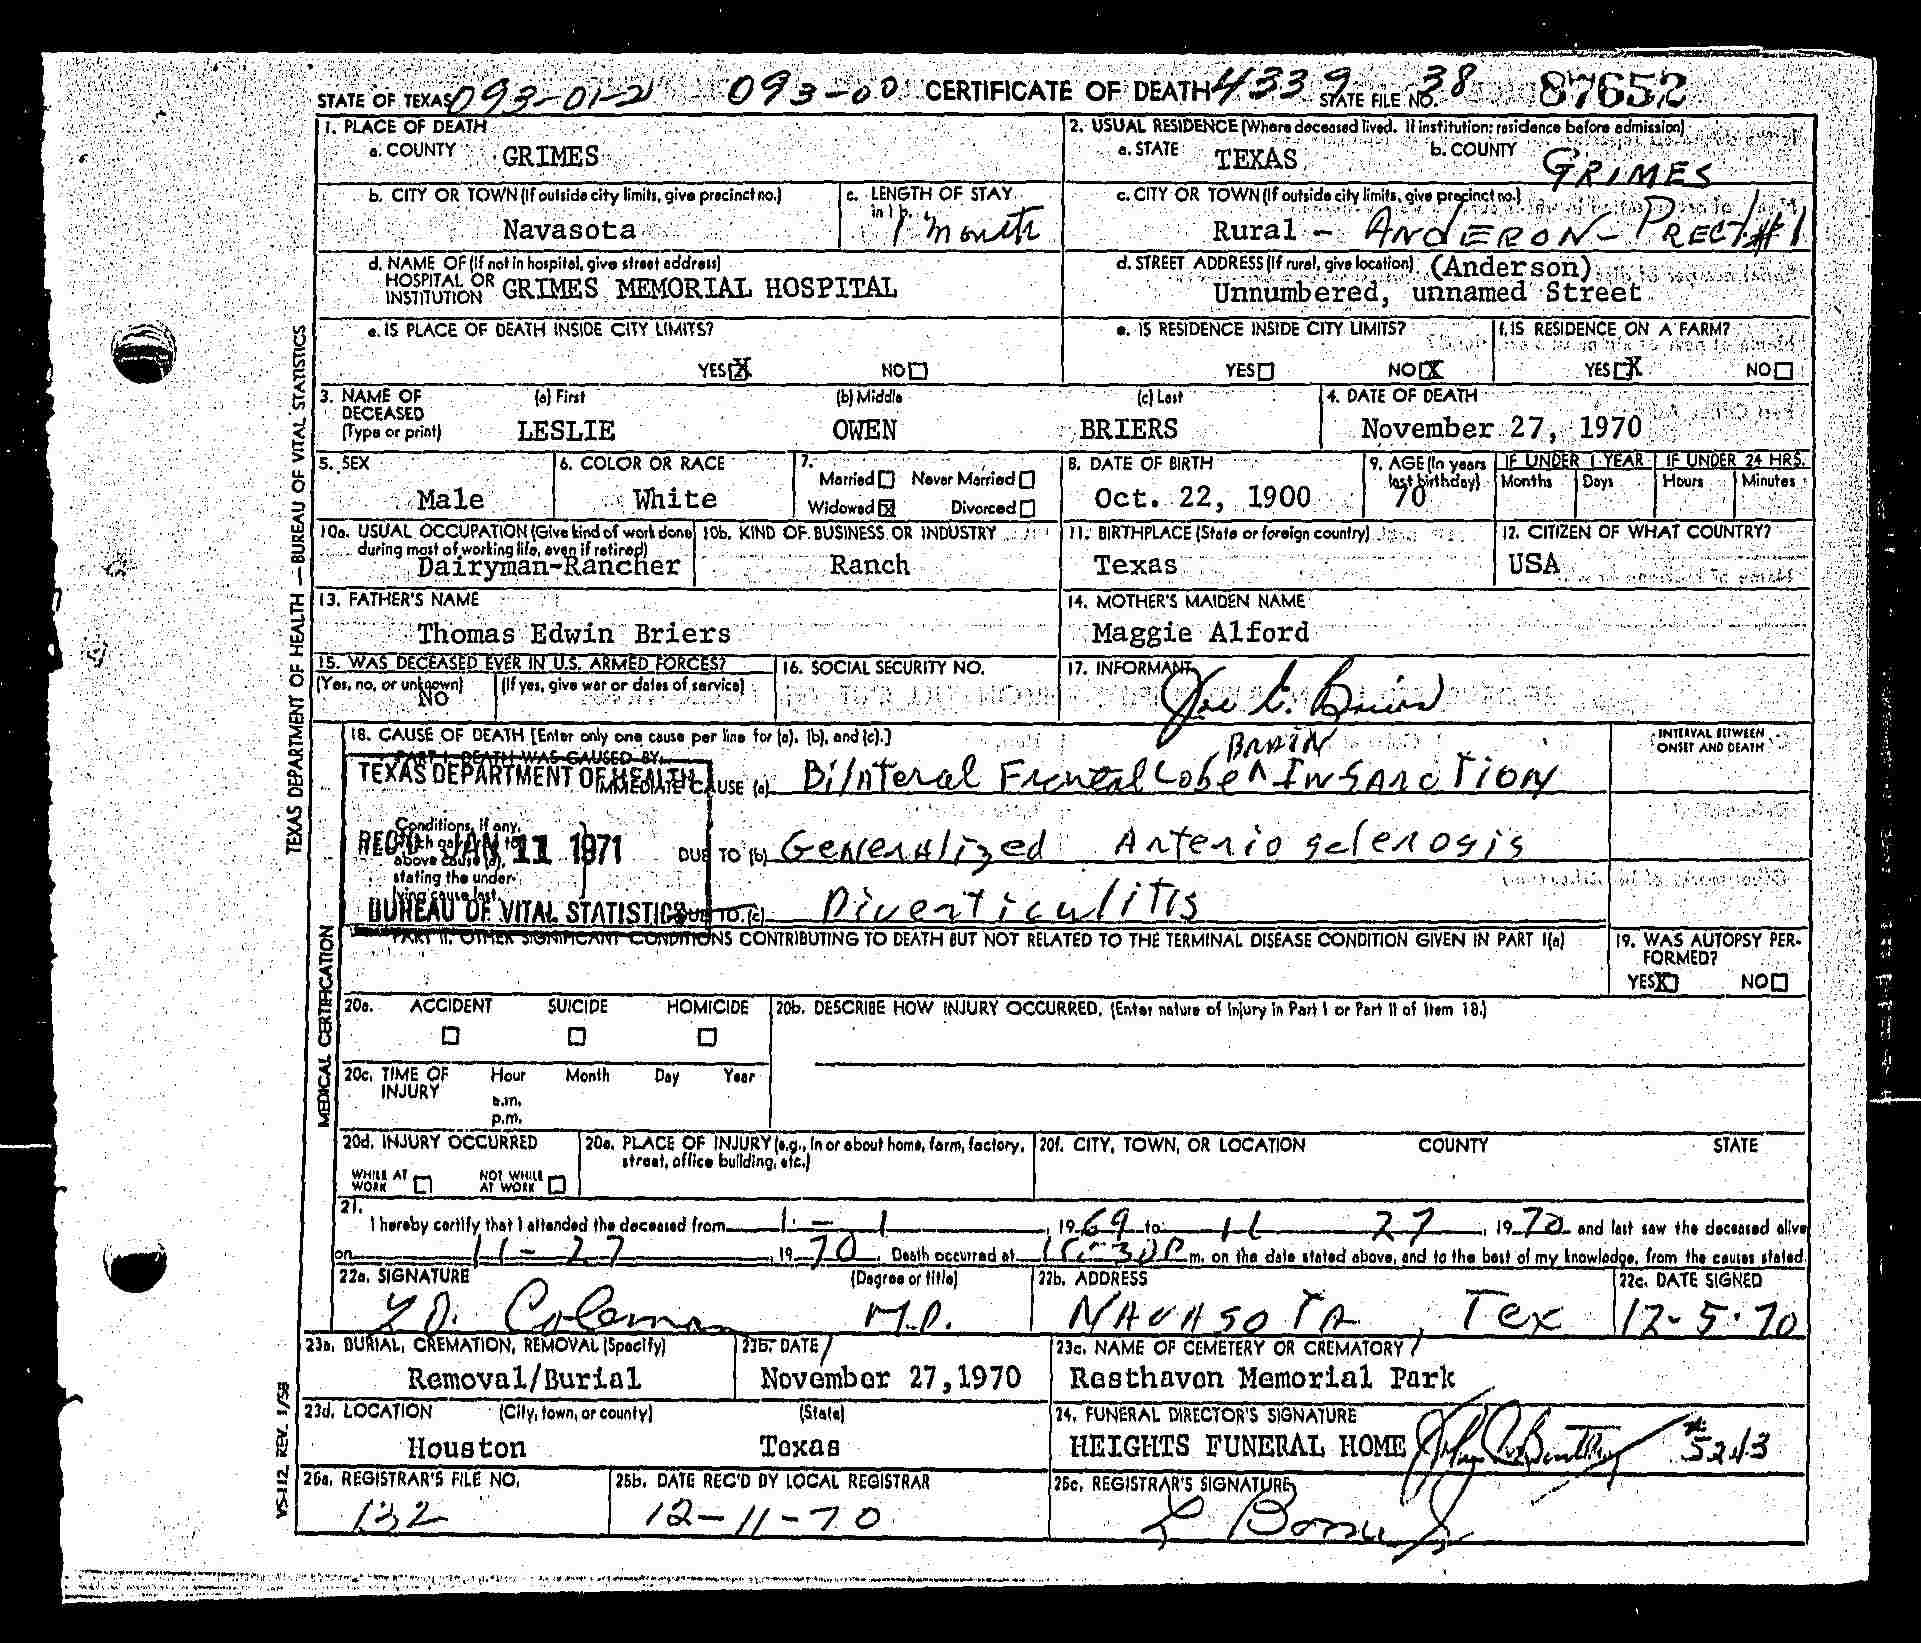 STATE OF TEXAS 093-01-2 093-00 CERTIFICATE OF DEATH 4339 STATE FILE NO. 38 87652
1. PLACE OF DEATH
a. COUNTY GRIMES
2. USUAL RESIDENCE (Where deceased lived. If institution: residence before admission)
a. STATE TEXAS b. COUNTY GRIMES
b. CITY OR TOWN (If outside city limits, give precinct no.) Navasota
c. LENGTH OF STAY in 1 b. 1 month
c. CITY OR TOWN (If outside city limits, give precinct no.)
Rural - ANDERON - PRECT #1
d. NAME OF (If not in hospital, give street address)
HOSPITAL OR INSTITUTION GRIMES MEMORIAL HOSPITAL
d. STREET ADDRESS (If rural, give location) (Anderson)
Unnumbered, unnamed Street
e. IS PLACE OF DEATH INSIDE CITY LIMITS?
YES X NO
e. IS RESIDENCE INSIDE CITY LIMITS?
YES NO X
f. IS RESIDENCE ON A FARM?
YES X NO
3. NAME OF DECEASED (Type or print)
(a) First (b) Middle (c) Last
LESLIE OWEN BRIERS
4. DATE OF DEATH
November 27, 1970
5. SEX
Male
6. COLOR OR RACE
White
7.
Married Never Married
Widowed X Divorced
8. DATE OF BIRTH
Oct. 22, 1900
9. AGE (In years last birthday)
70
IF UNDER 1 YEAR
Months Days
IF UNDER 24 HRS.
Hours Minutes
10a. USUAL OCCUPATION (Give kind of work done during most of working life, even if retired)
Dairyman-Rancher
10b. KIND OF BUSINESS OR INDUSTRY
Ranch
11. BIRTHPLACE (State or foreign country)
Texas
12. CITIZEN OF WHAT COUNTRY?
USA
13. FATHER'S NAME
Thomas Edwin Briers
14. MOTHER'S MAIDEN NAME
Maggie Alford
15. WAS DECEASED EVER IN U.S. ARMED FORCES?
(Yes, no, or unknown) (If yes, give war or dates of service)
NO
16. SOCIAL SECURITY NO.
17. INFORMANT
18. CAUSE OF DEATH [Enter only one cause per line for (a), (b), and (c).]
PART I. DEATH WAS CAUSED BY:
INTERVAL BETWEEN ONSET AND DEATH
IMMEDIATE CAUSE (a) Bilateral Frontal Lobe ^ BRAIN Insarction
Conditions, if any, which gave rise to above cause (a), stating the underlying cause last.
DUE TO (b) Generalized Arterio sclerosis
DUE TO (c) Diverticulitis
TEXAS DEPARTMENT OF HEALTH
REC'D JAN 11 1971
BUREAU OF VITAL STATISTICS
PART II. OTHER SIGNIFICANT CONDITIONS CONTRIBUTING TO DEATH BUT NOT RELATED TO THE TERMINAL DISEASE CONDITION GIVEN IN PART I(a)
19. WAS AUTOPSY PERFORMED?
YES X NO
20a. ACCIDENT SUICIDE HOMICIDE
20b. DESCRIBE HOW INJURY OCCURRED. (Enter nature of injury in Part I or Part II of Item 18.)
20c. TIME OF INJURY Hour Month Day Year
a.m.
p.m.
20d. INJURY OCCURRED
WHILE AT WORK NOT WHILE AT WORK
20e. PLACE OF INJURY (e.g., in or about home, farm, factory, street, office building, etc.)
20f. CITY, TOWN, OR LOCATION COUNTY STATE
21.
I hereby certify that I attended the deceased from 1 - 1, 1969 to 11 27, 1970 and last saw the deceased alive
on 11-27, 1970. Death occurred at m. on the date stated above, and to the best of my knowledge, from the causes stated.
22a. SIGNATURE (Degree or title)
Coleman M.D.
22b. ADDRESS
NAVASOTA, Tex
22c. DATE SIGNED
12-5-70
23a. BURIAL, CREMATION, REMOVAL (Specify)
Removal/Burial
23b. DATE
November 27, 1970
23c. NAME OF CEMETERY OR CREMATORY
Resthaven Memorial Park
23d. LOCATION (City, town, or county) (State)
Houston Texas
24. FUNERAL DIRECTOR'S SIGNATURE
HEIGHTS FUNERAL HOME #5243
25a. REGISTRAR'S FILE NO.
132
25b. DATE REC'D BY LOCAL REGISTRAR
12-11-70
25c. REGISTRAR'S SIGNATURE
TEXAS DEPARTMENT OF HEALTH — BUREAU OF VITAL STATISTICS
MEDICAL CERTIFICATION
VS-112, REV. 1/58